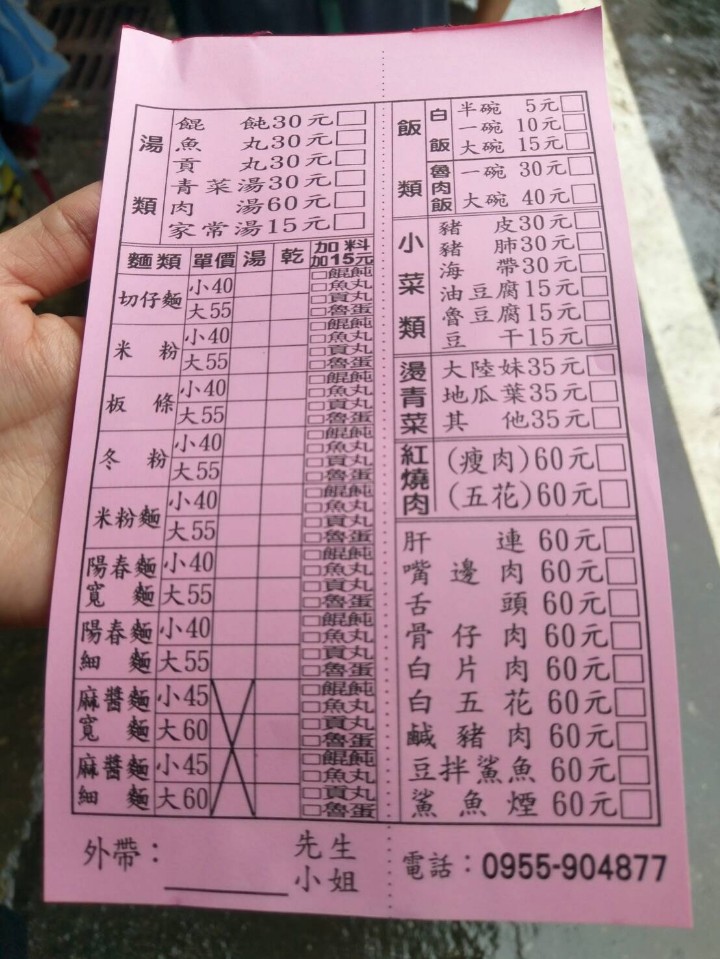 湯類
餛飩30元□
魚丸30元□
貢丸30元□
青菜湯30元□
肉湯60元□
家常湯15元□
麵類 單價 湯 乾 加料加15元
切仔麵 小40 □餛飩 □魚丸
大55 □貢丸 □魯蛋
米粉 小40 □餛飩 □魚丸
大55 □貢丸 □魯蛋
板條 小40 □餛飩 □魚丸
大55 □貢丸 □魯蛋
冬粉 小40 □餛飩 □魚丸
大55 □貢丸 □魯蛋
米粉麵 小40 □餛飩 □魚丸
大55 □貢丸 □魯蛋
陽春麵 小40 □餛飩 □魚丸
寬麵 大55 □貢丸 □魯蛋
陽春麵 小40 □餛飩 □魚丸
細麵 大55 □貢丸 □魯蛋
麻醬麵 小45 □餛飩 □魚丸
寬麵 大60 □貢丸 □魯蛋
麻醬麵 小45 □餛飩 □魚丸
細麵 大60 □貢丸 □魯蛋
外帶：
先生
小姐
飯類
白飯
半碗 5元□
一碗 10元□
大碗 15元□
魯肉飯
一碗 30元□
大碗 40元□
小菜類
豬皮30元□
豬肺30元□
海帶30元□
油豆腐15元□
魯豆腐15元□
豆干15元□
燙青菜
大陸妹35元□
地瓜葉35元□
其他35元□
紅燒肉
(瘦肉)60元□
(五花)60元□
肝連 60元□
嘴邊肉 60元□
舌頭 60元□
骨仔肉 60元□
白片肉 60元□
白五花 60元□
鹹豬肉 60元□
豆拌鯊魚 60元□
鯊魚煙 60元□
電話：0955-904877